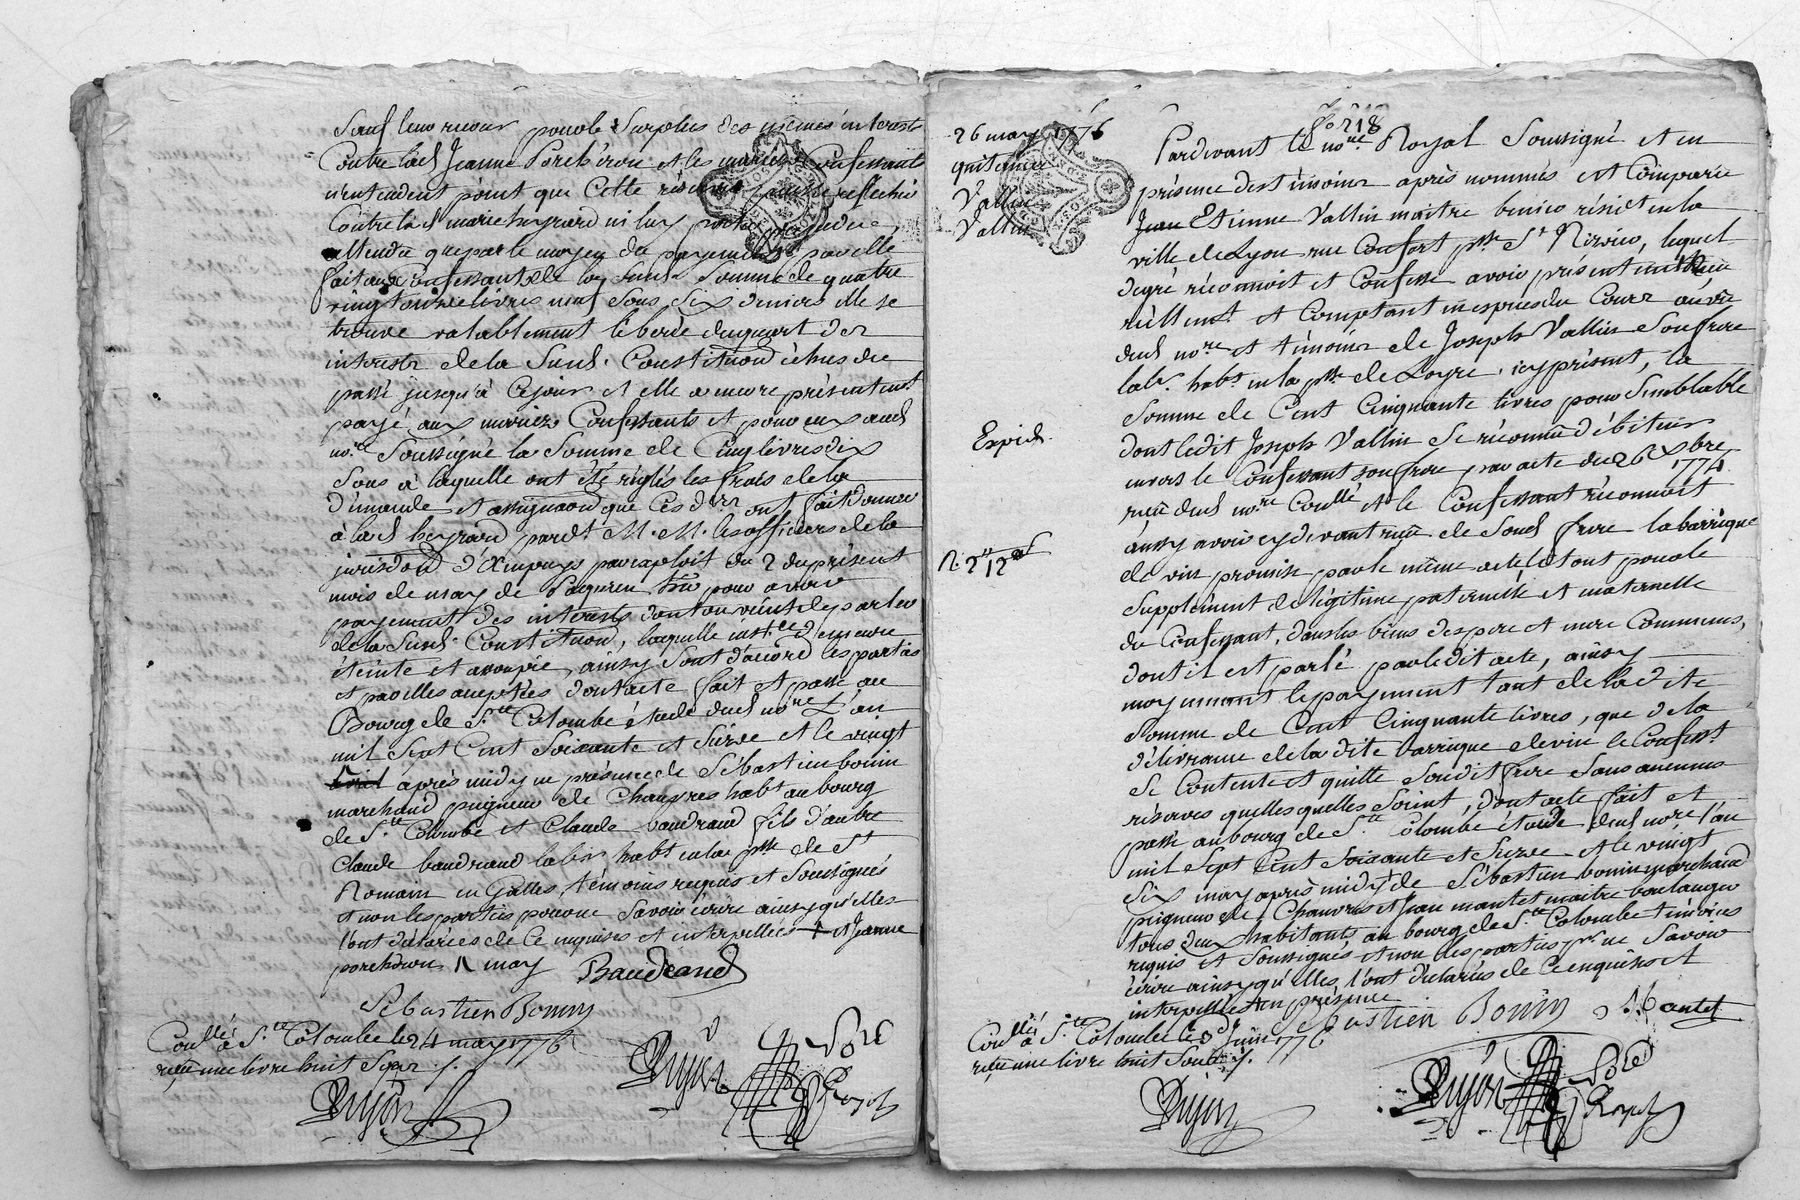 Sauf leur recour pour le Surplus des mêmes interests
Contre lad Jeanne Porcheron et les mariez Confessants
n'entendent point que Cette réserve puisse reflechir
Contre lad marie heyrard ni luy porter préjudice,
attendu que par le moyen du payement par elle
fait aux Confessants de lad Somme de quatre
vingt onze livres neuf Sous Six deniers elle se
trouve valablement liberée du quart des
interests de la Susd. Constitution échus du
passé jusqu'à Ce jour et elle a encore présentemt
payé aux mariez Confessants et pour eux aud
nore Soussigné la Somme de Cinq livres dix
Sous à laquelle ont été réglés les frais de la
demande et assignaon que Ces drs ont fait donner
à lad heyrard pardt M. M. les officiers de la
jurisdon d'Ampuys par exploit du 2 du présent
mois de may de pour avoir
payement des interests dont on vient de parler
de la Susd. Constituon, laquelle instce demeure
éteinte et assoupie, ainsy Sont d'accord les parties
et par elles acceptées dont acte fait et passé au
Bourg de Ste Colombe étude dud nore L'an
mil Sept Cent Soixante et Seize et le vingt
après midy en présence de Sébastien bonin
marchand peigneur de Chanvres habt au bourg
de Ste Colombe et Claude baudrand fils d'autre
Claude baudrand labr habt en la psse de St
Romain en Galles, témoins requis et Soussignés
et non les parties pour ne Savoir écrire ainsy qu'elles
l'ont déclarées de Ce enquises et interpellées + et Jeanne
porcheron + may Baudrand
Sébastien Bonin
Conllé à Ste Colombe le 24 may 1776
reçu une livre huit Sous
Dujon
Dujon
Noré
Royal
fo 218
26 may 1776
quittance
Vallin
à
Vallin
Expied.
Pardevant le nore Royal Soussigné et en
présence des témoins après nommés est Comparu
Jean Etienne Vallin maitre résidt en la
ville de Lyon rue Confort psse St Nizier, lequel
de gré réconnoit et Confesse avoir présentemt reçu
réellemt et Comptant en espèces du Cours au vu
dud nore et témoins de Joseph Vallin Son frere
labr. habt en la psse de Loyre, icy présent, la
Somme de Cent Cinquante livres pour Semblable
dont ledit Joseph Vallin Se réconnu débiteur
envers le Confessant son frere par acte du 26 Xbre 1774
reçu dud nore Conllé et le Confessant réconnoit
aussy avoir cy devant reçu de Sond frere la barrique
de vin promise par le même acte le tout pour le
Supplement de légitime paternelle et maternelle
du Confessant, dans les biens des pere et mere Communs,
dont il est parlé par ledit acte, ainsy
moyennant le payement tant de la dite
Somme de Cent Cinquante livres, que de la
délivrance de la dite barrique de vin le Confesst
Se Contente et quitte Sondit frere Sans aucunes
réserves quelles quelles Soient, dont acte fait et
passé au bourg de Ste Colombe étude dud nore l'an
mil Sept Cent Soixante et Seize et le vingt
Six may après midy + de Sébastien bonin marchand
peigneur de Chanvres et Jean mantet maitre boulanger
tous deux habitants au bourg de Ste Colombe témoins
requis et Soussignés et non les parties pr ne Savoir
écrire ainsy qu'elles l'ont déclarées de Ce enquises et
interpellées + en présence
Sébastien Bonin
J Mantet
Conllé à Ste Colombe le 3 Juin 1776
reçu une livre huit Sous
Dujon
Dujon
Noré
Royal